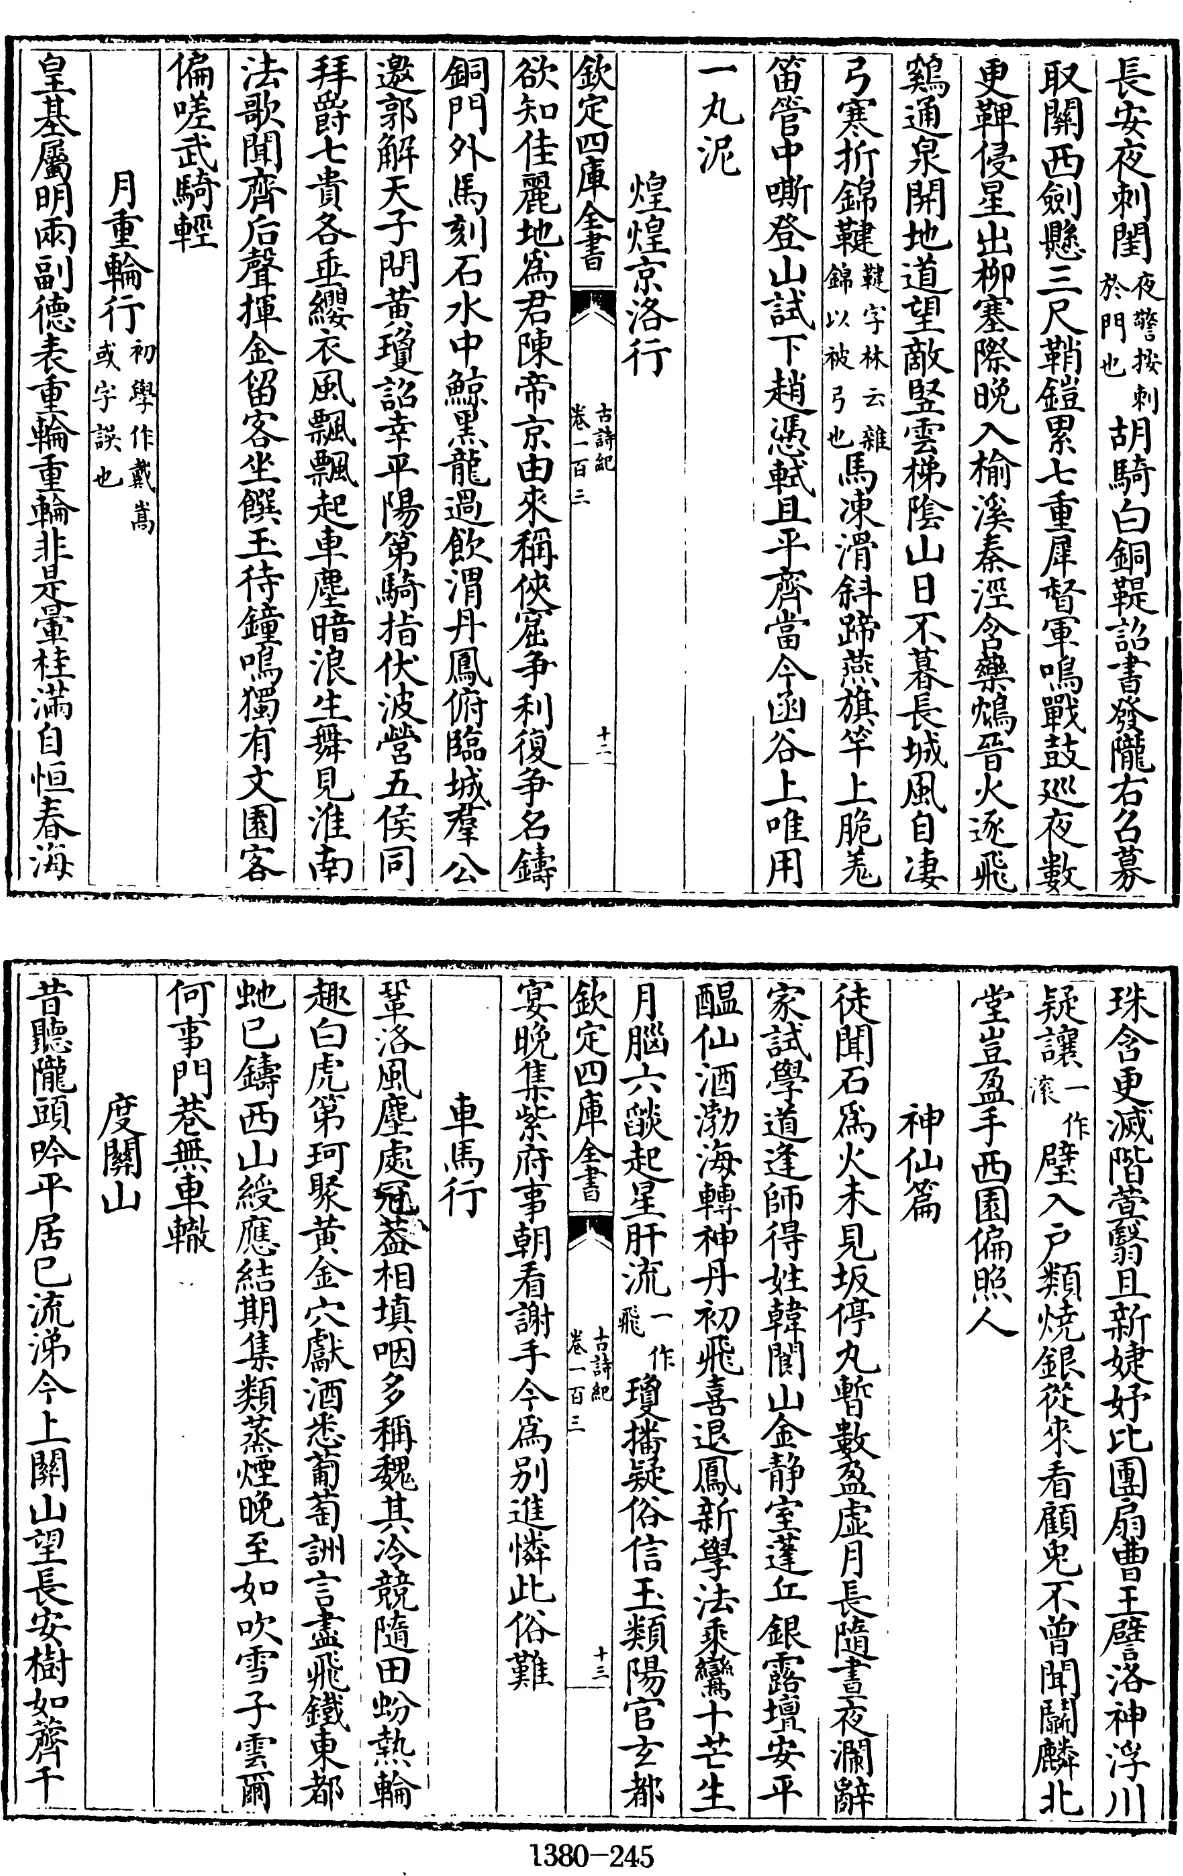 長安夜刺閨夜警按刺於門也胡騎白銅鞮詔書發隴右召募
取關西劍懸三尺鞘鎧累七重犀督軍鳴戰鼓巡夜數
更鞞侵星出柳塞際晚入榆溪秦涇含藥鴆晉火逐飛
鷄通泉開地道望敵竪雲梯陰山日不暮長城風自凄
弓寒折錦鞬鞬字林云雜錦以被弓也馬凍滑斜蹄燕旗竿上脆羌
笛管中嘶登山試下趙憑軾且平齊當今函谷上唯用
一丸泥
煌煌京洛行
欽定四庫全書
古詩紀
卷一百三
十二
欲知佳麗地爲君陳帝京由來稱俠窟争利復争名鑄
銅門外馬刻石水中鯨黑龍過飲渭丹鳳俯臨城羣公
邀郭解天子問黄瓊詔幸平陽第騎指伏波營五侯同
拜爵七貴各垂纓衣風飄飄起車塵暗浪生舞見淮南
法歌聞齊后聲揮金留客坐饌玉待鐘鳴獨有文園客
偏嗟武騎輕
月重輪行初學作戴嵩或字誤也
皇基屬明兩副德表重輪重輪非是暈桂滿自恒春海
珠含更滅階蓂翳且新婕妤比團扇曹王譬洛神浮川
疑讓一作滚璧入户類燒銀從來看顧兔不曾聞鬭麟北
堂豈盈手西園偏照人
神仙篇
徒聞石爲火未見坂停丸暫數盈虚月長隨晝夜瀾辭
家試學道逢師得姓韓閬山金静室蓬丘銀露壇安平
醖仙酒渤海轉神丹初飛喜退鳳新學法乘鸞十芒生
月腦六燄起星肝流一作飛瓊播疑俗信玉類陽官玄都
欽定四庫全書
古詩紀
卷一百三
十三
宴晚集紫府事朝看謝手今爲别進憐此俗難
車馬行
鞏洛風塵處冠葢相填咽多稱魏其冷競隨田蚡熱輪
趣白虎第珂聚黄金穴獻酒悉葡萄詶言盡飛鐵東都
虵已鑄西山綬應結期集類蒸煙晚至如吹雪子雲爾
何事門巷無車轍
度關山
昔聽隴頭吟平居已流涕今上關山望長安樹如薺千
1380-245